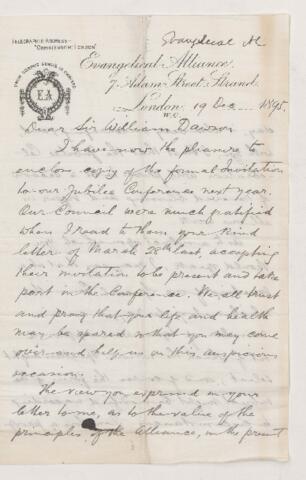 Evangelical Al
TELEGRAPHIC ADDRESS—
Evangelical Alliance,
EA
7, Adam Street, Strand,
London, 19 Dec 1895.
W.C.
Dear Sir William Dawson
I have now the pleasure to
enclose copy of the formal Invitation
to our Jubilee Conference next year.
Our Council were much gratified
when I read to them your kind
letter of March 28th last, accepting
their invitation to be present and take
part in the Conference. We all trust
and pray that your life and health
may be spared & that you may come
over and help us on this auspicious
occasion.
The view you expressed in your
letter to me, as to the value of the
principles of the Alliance, in the present